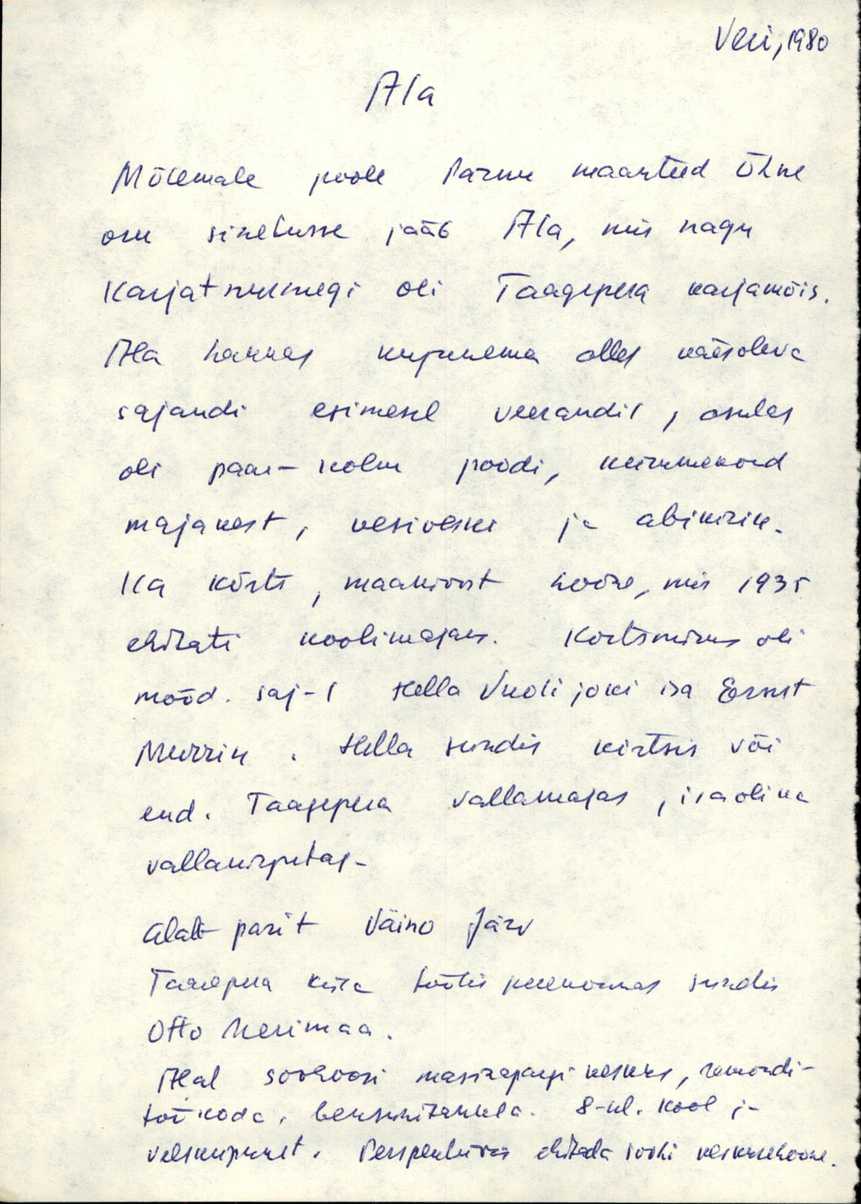 Veri, 1980
Ala
Mõlemale poole Pärnu maanteed Õhne
oru sisselusse jääb Ala, mis nagu
Karjatnurmegi oli Taagepera karjamõis.
Ala hakkas kujunema alles käesoleva
sajandi esimesel veerandil, asulas
oli paar-kolm poodi, kümmekond
majakest, vesiveski ja abikirik.
Ka kõrts, maakivist hoone, mis 1935
ehitati koolimajaks. Kõrtsmikuks oli
mööd. saj-l Hella Vuolijoki isa Ernst
Murrik. Hella sündis kõrtsis või
end. Taagepera vallamajas, isa oli ka
vallakirjutaj-
Alalt pärit Väino Järv
Taagepera küla töölisperekonnas sündis
Otto Merimaa.
Alal sovhoosi masinapargi keskus, remondi-
töökoda, bensiinitankla. 8-kl. kool j-
velskripunkt. Perspektiivis ehitada sovhi keskusehoone.